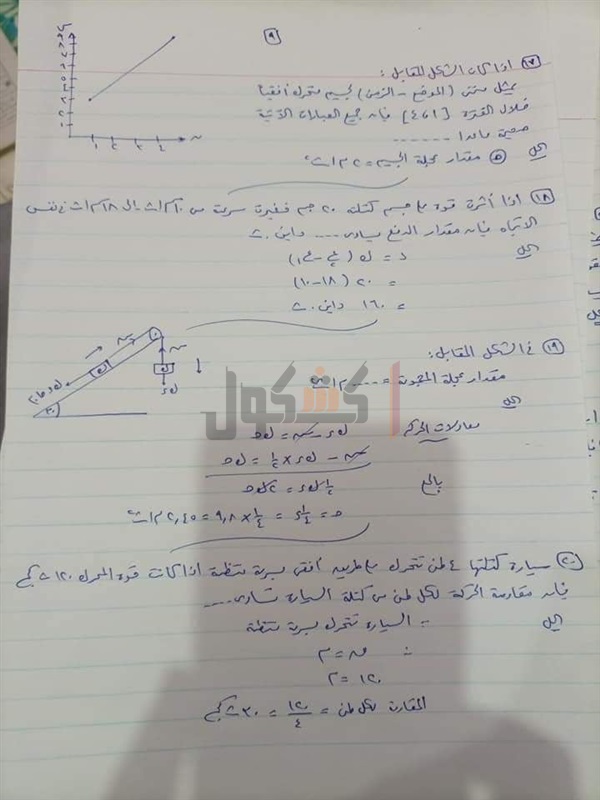 ٩
١٧ اذا كان الشكل المقابل :
يمثل منحنى (الموضع - الزمن) لجسم يتحرك أفقياً
خلال الفترة [١، ٤] فإن جميع العبارات الآتية
صحيحة ما عدا ------
الحل
مقدار عجلة الجسم = ٢ م/ث²
١٨ اذا أثرت قوة على جسم كتلته ٢٠ جم فغيرت سرعته من ١٠ سم/ث إلى ١٨ سم/ث في نفس
الاتجاه فإن مقدار الدفع يساوى ---- داين . ث
الحل
د = ك (ع٢ - ع١)
= ٢٠ (١٨ - ١٠)
= ١٦٠ داين . ث
١٩ في الشكل المقابل :
مقدار عجلة المجموعة = ---- م/ث²
كشكول
الحل
معادلات الحركة
ك د - ش = ك ح
ش - ك د × ½ = ك ح
بالجمع
½ ك د = ٢ ك ح
ح = ¼ د = ¼ × ٩,٨ = ٢,٤٥ م/ث²
٢٠ سيارة كتلتها ٤ طن تتحرك على طريق أفقى بسرعة منتظمة اذا كانت قوة المحرك ١٢٠ ث كجم
فإن مقاومة الحركة لكل طن من كتلة السيارة تساوى ----
الحل
∵ السيارة تتحرك بسرعة منتظمة
∴ ق = م
م = ١٢٠
المقاومة لكل طن = ١٢٠/٤ = ٣٠ ث كجم